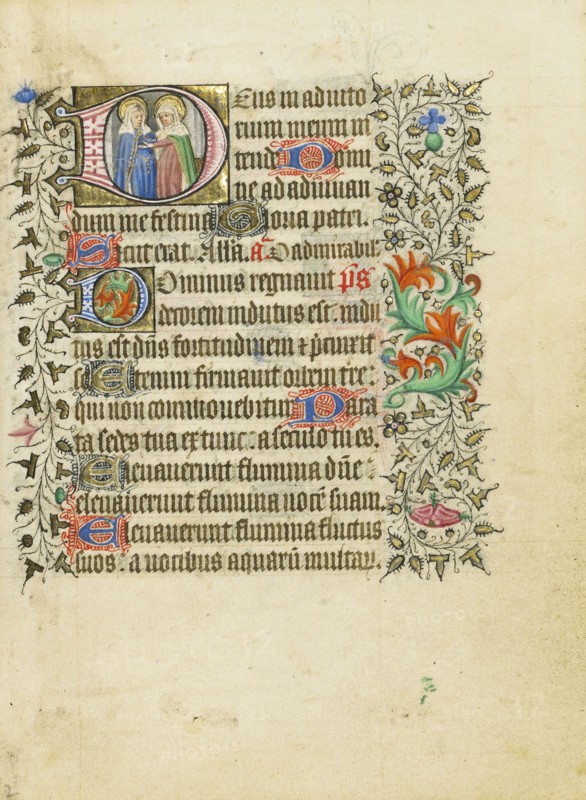 Deus in adiuto
rium meum in
tende Domi
ne ad adiuuan
dum me festina Gloria patri.
Sicut erat. Alla. a O admirabile
Dominus regnauit ps
decorem indutus est: indu
tus est dns fortitudinem & precinxit
se Etenim firmauit orbem tre:
qui non commouebitur Para
ta sedes tua ex tunc: a seculo tu es.
Eleuauerunt flumina dne:
eleuauerunt flumina uocē suam.
Eleuauerunt flumina fluctus
suos: a uocibus aquarū multar.